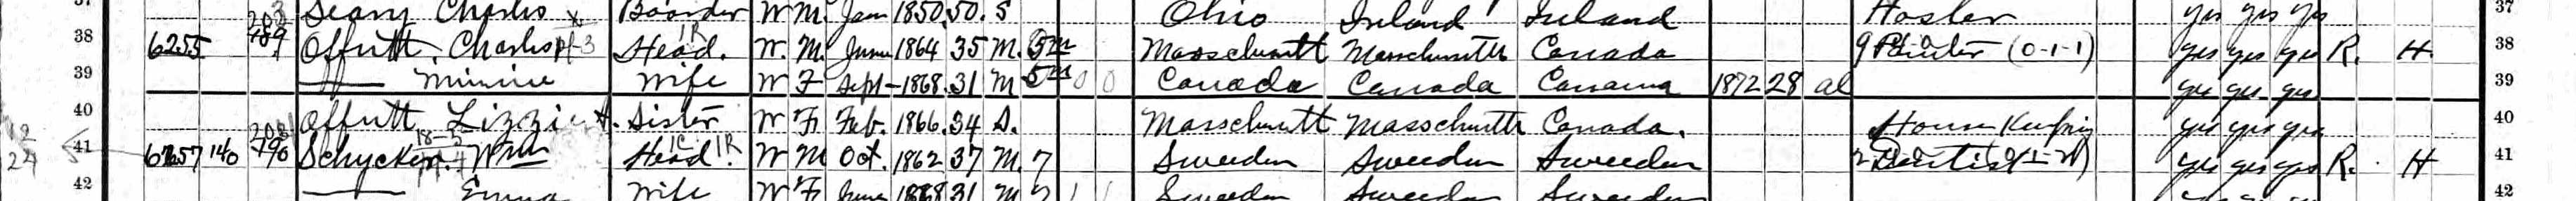 37 Boarder W M. Jan 1850 50. S Ohio Ireland Ireland Hosler yes yes yes 37
38 6255 Offutt, Charles H-3 Head. W. M. June 1864 35 M. Massachusett Massachusetts Canada (0-1-1) yes yes yes R. H. 38
39 Minnie Wife W F Sept - 1868. 31 M 0 0 Canada Canada 1872 28 al yes yes yes 39
40 Offutt Lizzie H. Sister W F. Feb. 1866. 34 S. Massachusett Massachusetts Canada. House Keeping yes yes yes 40
12
24 41 140 Wm Head. W M Oct. 1862 37 M. 7 Sweeden Sweeden Sweeden Dentist yes yes yes R. H 41
42 Emma Wife W F June 1868 31 M 7 1 1 Sweeden Sweeden Sweeden 42